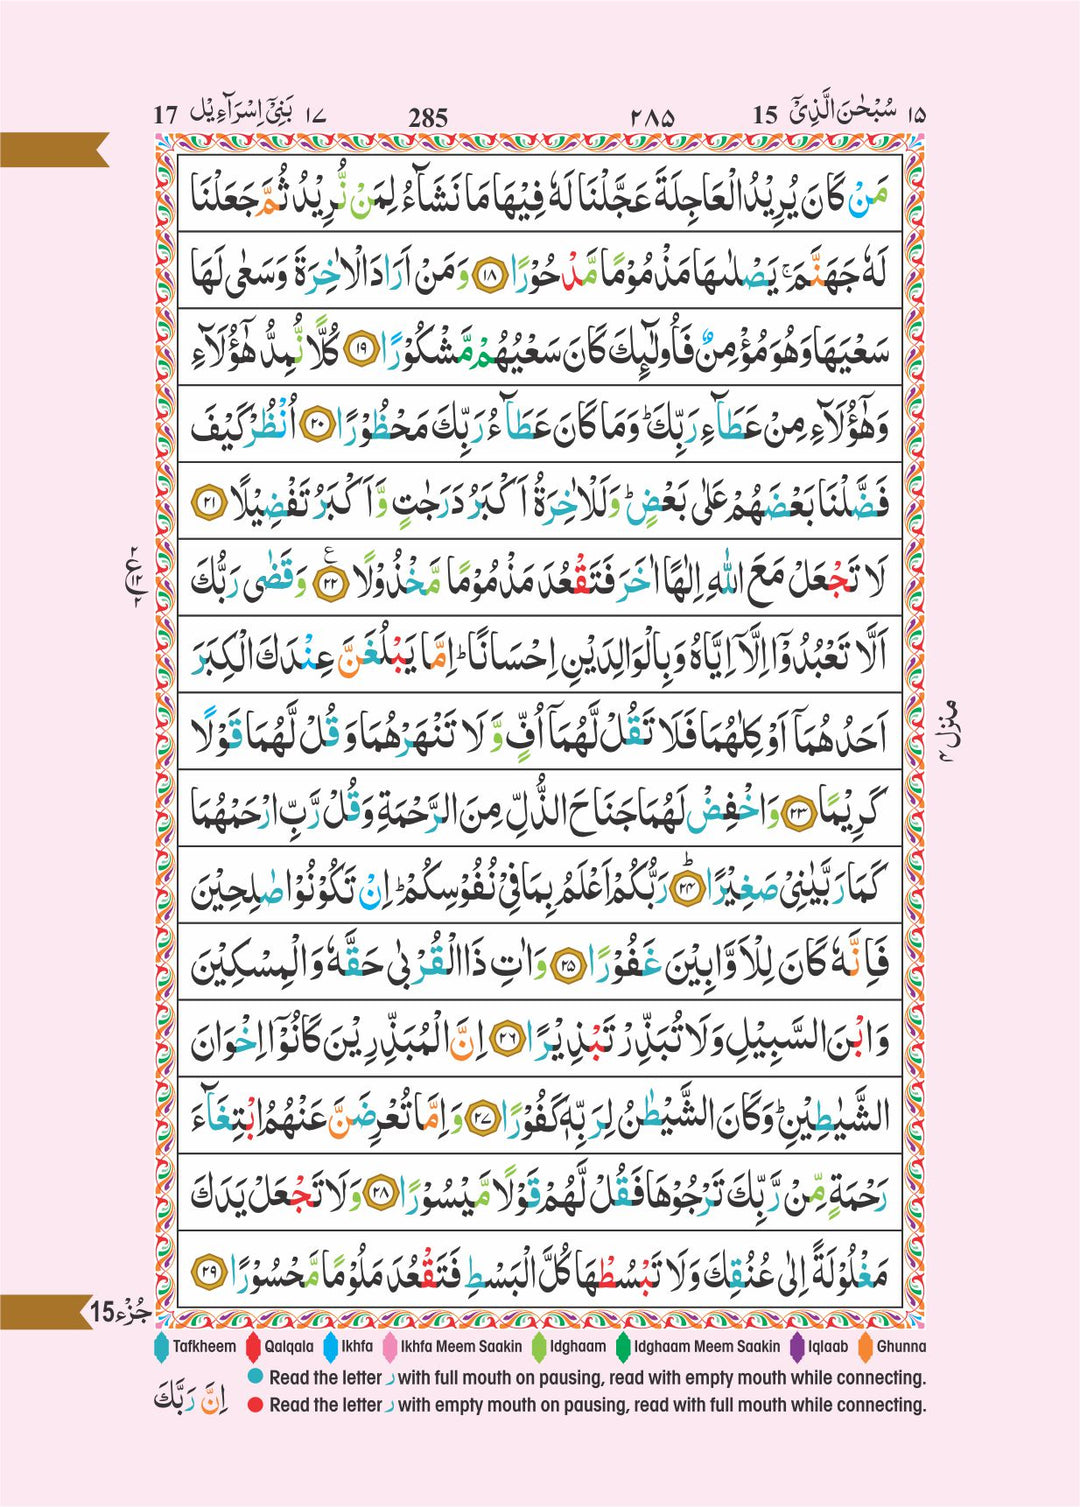 ۱۵ سُبْحٰنَ الَّذِیْۤ 15 ۲۸۵ 285 ۱۷ بَنِیْۤ اِسْرَآءِیْل 17
مَنْ كَانَ یُرِیْدُ الْعَاجِلَةَ عَجَّلْنَا لَهٗ فِیْهَا مَا نَشَآءُ لِمَنْ نُّرِیْدُ ثُمَّ جَعَلْنَا
لَهٗ جَهَنَّمَ ۚ یَصْلٰىهَا مَذْمُوْمًا مَّدْحُوْرًا ۱۸ وَمَنْ اَرَادَ الْاٰخِرَةَ وَسَعٰى لَهَا
سَعْیَهَا وَهُوَ مُؤْمِنٌ فَاُولٰٓىِٕكَ كَانَ سَعْیُهُمْ مَّشْكُوْرًا ۱۹ كُلًّا نُّمِدُّ هٰۤؤُلَآءِ
وَهٰۤؤُلَآءِ مِنْ عَطَآءِ رَبِّكَ ؕ وَمَا كَانَ عَطَآءُ رَبِّكَ مَحْظُوْرًا ۲۰ اُنْظُرْ كَیْفَ
فَضَّلْنَا بَعْضَهُمْ عَلٰى بَعْضٍ ؕ وَلَلْاٰخِرَةُ اَكْبَرُ دَرَجٰتٍ وَّاَكْبَرُ تَفْضِیْلًا ۲۱
لَا تَجْعَلْ مَعَ اللّٰهِ اِلٰهًا اٰخَرَ فَتَقْعُدَ مَذْمُوْمًا مَّخْذُوْلًا ۲۲ ع وَقَضٰى رَبُّكَ
۲ ع ۱۲ ۲
اَلَّا تَعْبُدُوْۤا اِلَّاۤ اِیَّاهُ وَبِالْوَالِدَیْنِ اِحْسَانًا ؕ اِمَّا یَبْلُغَنَّ عِنْدَكَ الْكِبَرَ
اَحَدُهُمَاۤ اَوْ كِلٰهُمَا فَلَا تَقُلْ لَّهُمَاۤ اُفٍّ وَّلَا تَنْهَرْهُمَا وَقُلْ لَّهُمَا قَوْلًا
منزل ۴
كَرِیْمًا ۲۳ وَاخْفِضْ لَهُمَا جَنَاحَ الذُّلِّ مِنَ الرَّحْمَةِ وَقُلْ رَّبِّ ارْحَمْهُمَا
كَمَا رَبَّیٰنِیْ صَغِیْرًا ؕ ۲۴ رَبُّكُمْ اَعْلَمُ بِمَا فِیْ نُفُوْسِكُمْ ؕ اِنْ تَكُوْنُوْا صٰلِحِیْنَ
فَاِنَّهٗ كَانَ لِلْاَوَّابِیْنَ غَفُوْرًا ۲۵ وَاٰتِ ذَا الْقُرْبٰى حَقَّهٗ وَالْمِسْكِیْنَ
وَابْنَ السَّبِیْلِ وَلَا تُبَذِّرْ تَبْذِیْرًا ۲۶ اِنَّ الْمُبَذِّرِیْنَ كَانُوْۤا اِخْوَانَ
الشَّیٰطِیْنِ ؕ وَكَانَ الشَّیْطٰنُ لِرَبِّهٖ كَفُوْرًا ۲۷ وَاِمَّا تُعْرِضَنَّ عَنْهُمُ ابْتِغَآءَ
رَحْمَةٍ مِّنْ رَّبِّكَ تَرْجُوْهَا فَقُلْ لَّهُمْ قَوْلًا مَّیْسُوْرًا ۲۸ وَلَا تَجْعَلْ یَدَكَ
مَغْلُوْلَةً اِلٰى عُنُقِكَ وَلَا تَبْسُطْهَا كُلَّ الْبَسْطِ فَتَقْعُدَ مَلُوْمًا مَّحْسُوْرًا ۲۹
15 جُزْء
Tafkheem Qalqala Ikhfa Ikhfa Meem Saakin Idghaam Idghaam Meem Saakin Iqlaab Ghunna
Read the letter ر with full mouth on pausing, read with empty mouth while connecting.
Read the letter ر with empty mouth on pausing, read with full mouth while connecting.
اِنَّ رَبَّكَ